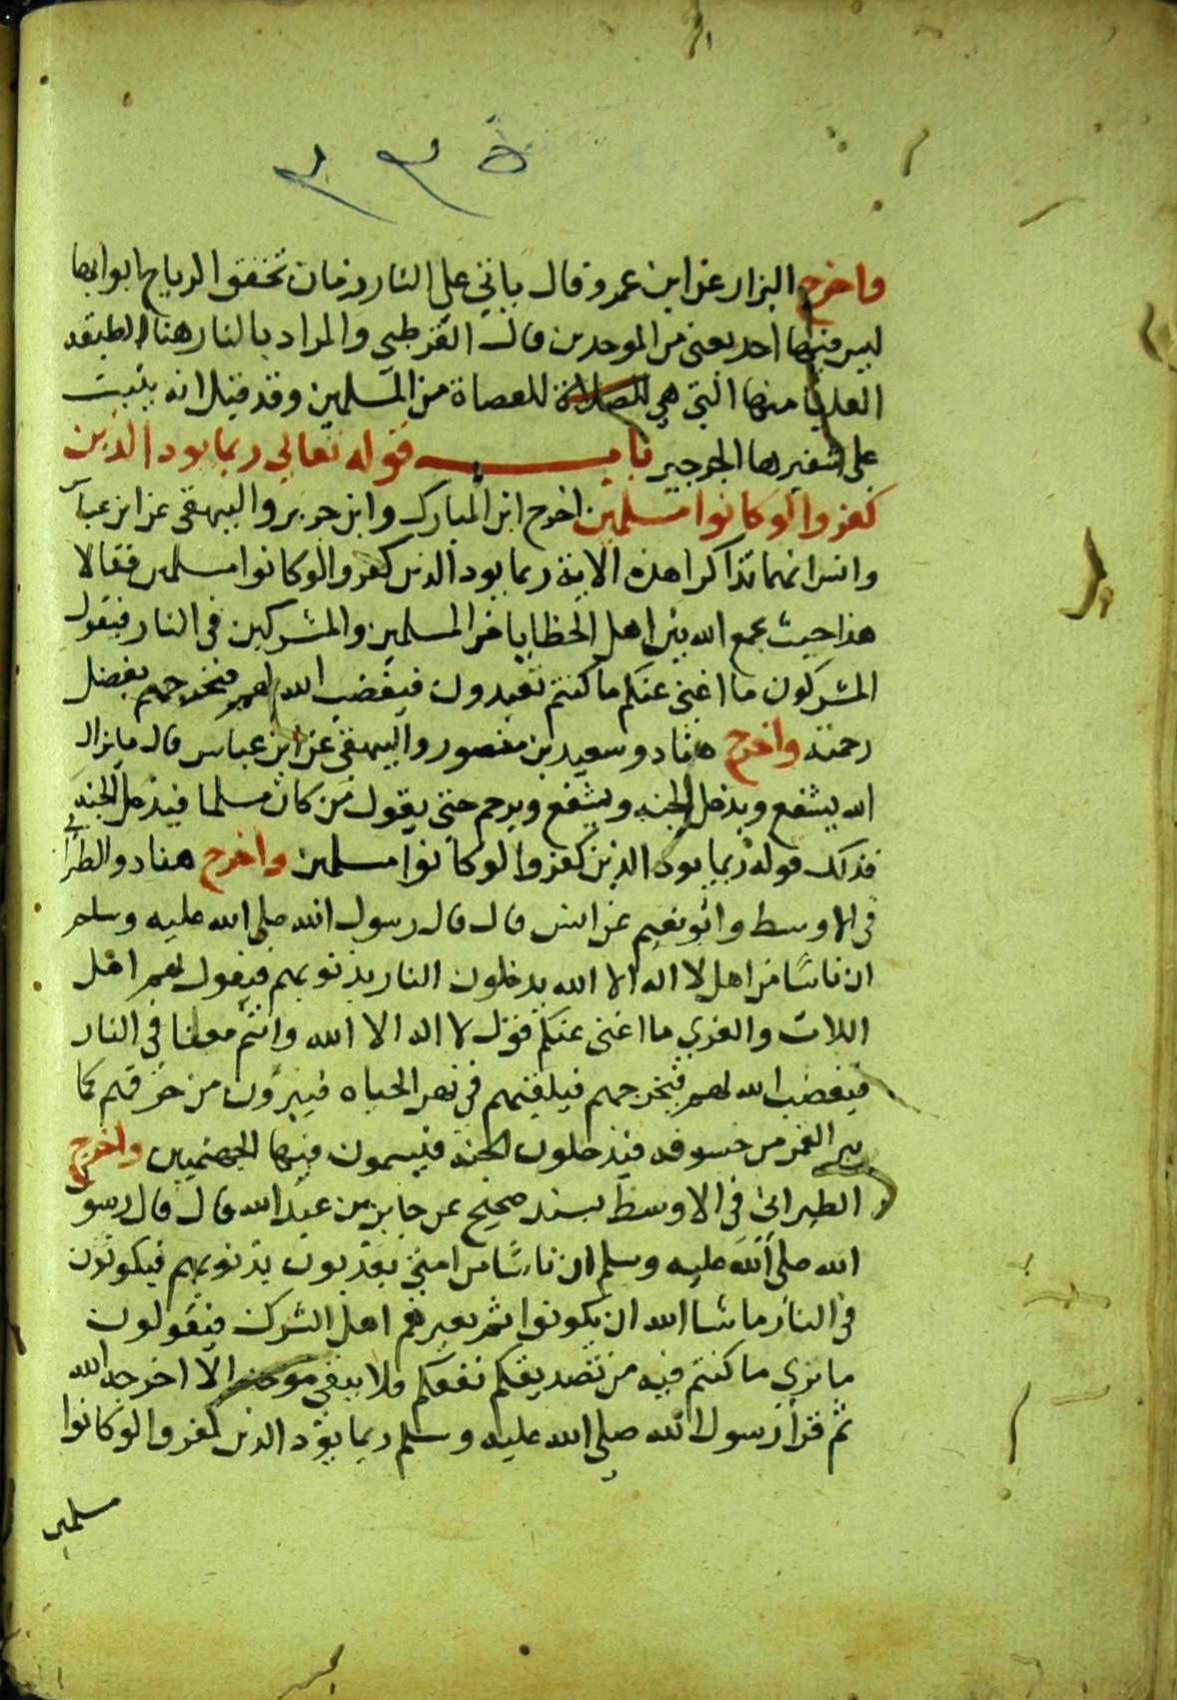 ٢٣٥
واخرج البزار عن ابن عمرو قال ياتي علي النار زمان تخفق الرياح ابوابها
ليس فيها احد يعني من الموحدين قال القرطبي والمراد بالنار هنا الطبقه
العليا منها التي هي للعصاة من المسلمين وقد قيل انه ينبت
علي شفيرها الجرجير باب قوله تعالي ربما يود الذين
كفروا لوكانوا مسلمين اخرج ابن المبارك وابن جرير والبيهقي عن ابن عباس
وانس انهما تذاكرا هذه الاية ربما يود الذين كفروا لوكانوا مسلمين فقالا
هذا حيث يجمع الله بين اهل الخطايا من المسلمين والمشركين في النار فيقول
المشركون ما اغني عنكم ما كنتم تعبدون فيغضب الله لهم فيخرجهم بفضل
رحمته واخرج هناد وسعيد بن منصور والبيهقي عن ابن عباس قال مايزال
الله يشفع ويدخل الجنه ويشفع ويرحم حتي يقول من كان مسلما فيدخل الجنه
فذلك قوله ربما يود الذين كفروا لوكانوا مسلمين واخرج هناد والطبراني
في الاوسط وابو نعيم عن انس قال قال رسول الله صلي الله عليه وسلم
ان ناسًا من اهل لا اله الا الله يدخلون النار بذنوبهم فيقول لهم اهل
اللات والعزي ما اغني عنكم قول لا اله الا الله وانتم معنا في النار
فيغضب الله لهم فيخرجهم فيلقيهم في نهر الحياه فيبرؤن من حرقهم كما
يبرا القمر من خسوفه فيدخلون الجنة فيسمون فيها الجهنميين واخرج
الطبراني في الاوسط بسند صحيح عن جابر بن عبد الله قال قال رسول
الله صلي الله عليه وسلم ان ناسًا من امتي يعذبون بذنوبهم فيكونون
في النار ماشا الله ان يكونوا ثم يعيرهم اهل الشرك فيقولون
ما نري ما كنتم فيه من تصديقكم نفعكم فلا يبقي موحد الا اخرجه الله
ثم قرأ رسول الله صلي الله عليه وسلم ربما يود الذين كفروا لوكانوا
مسلمين